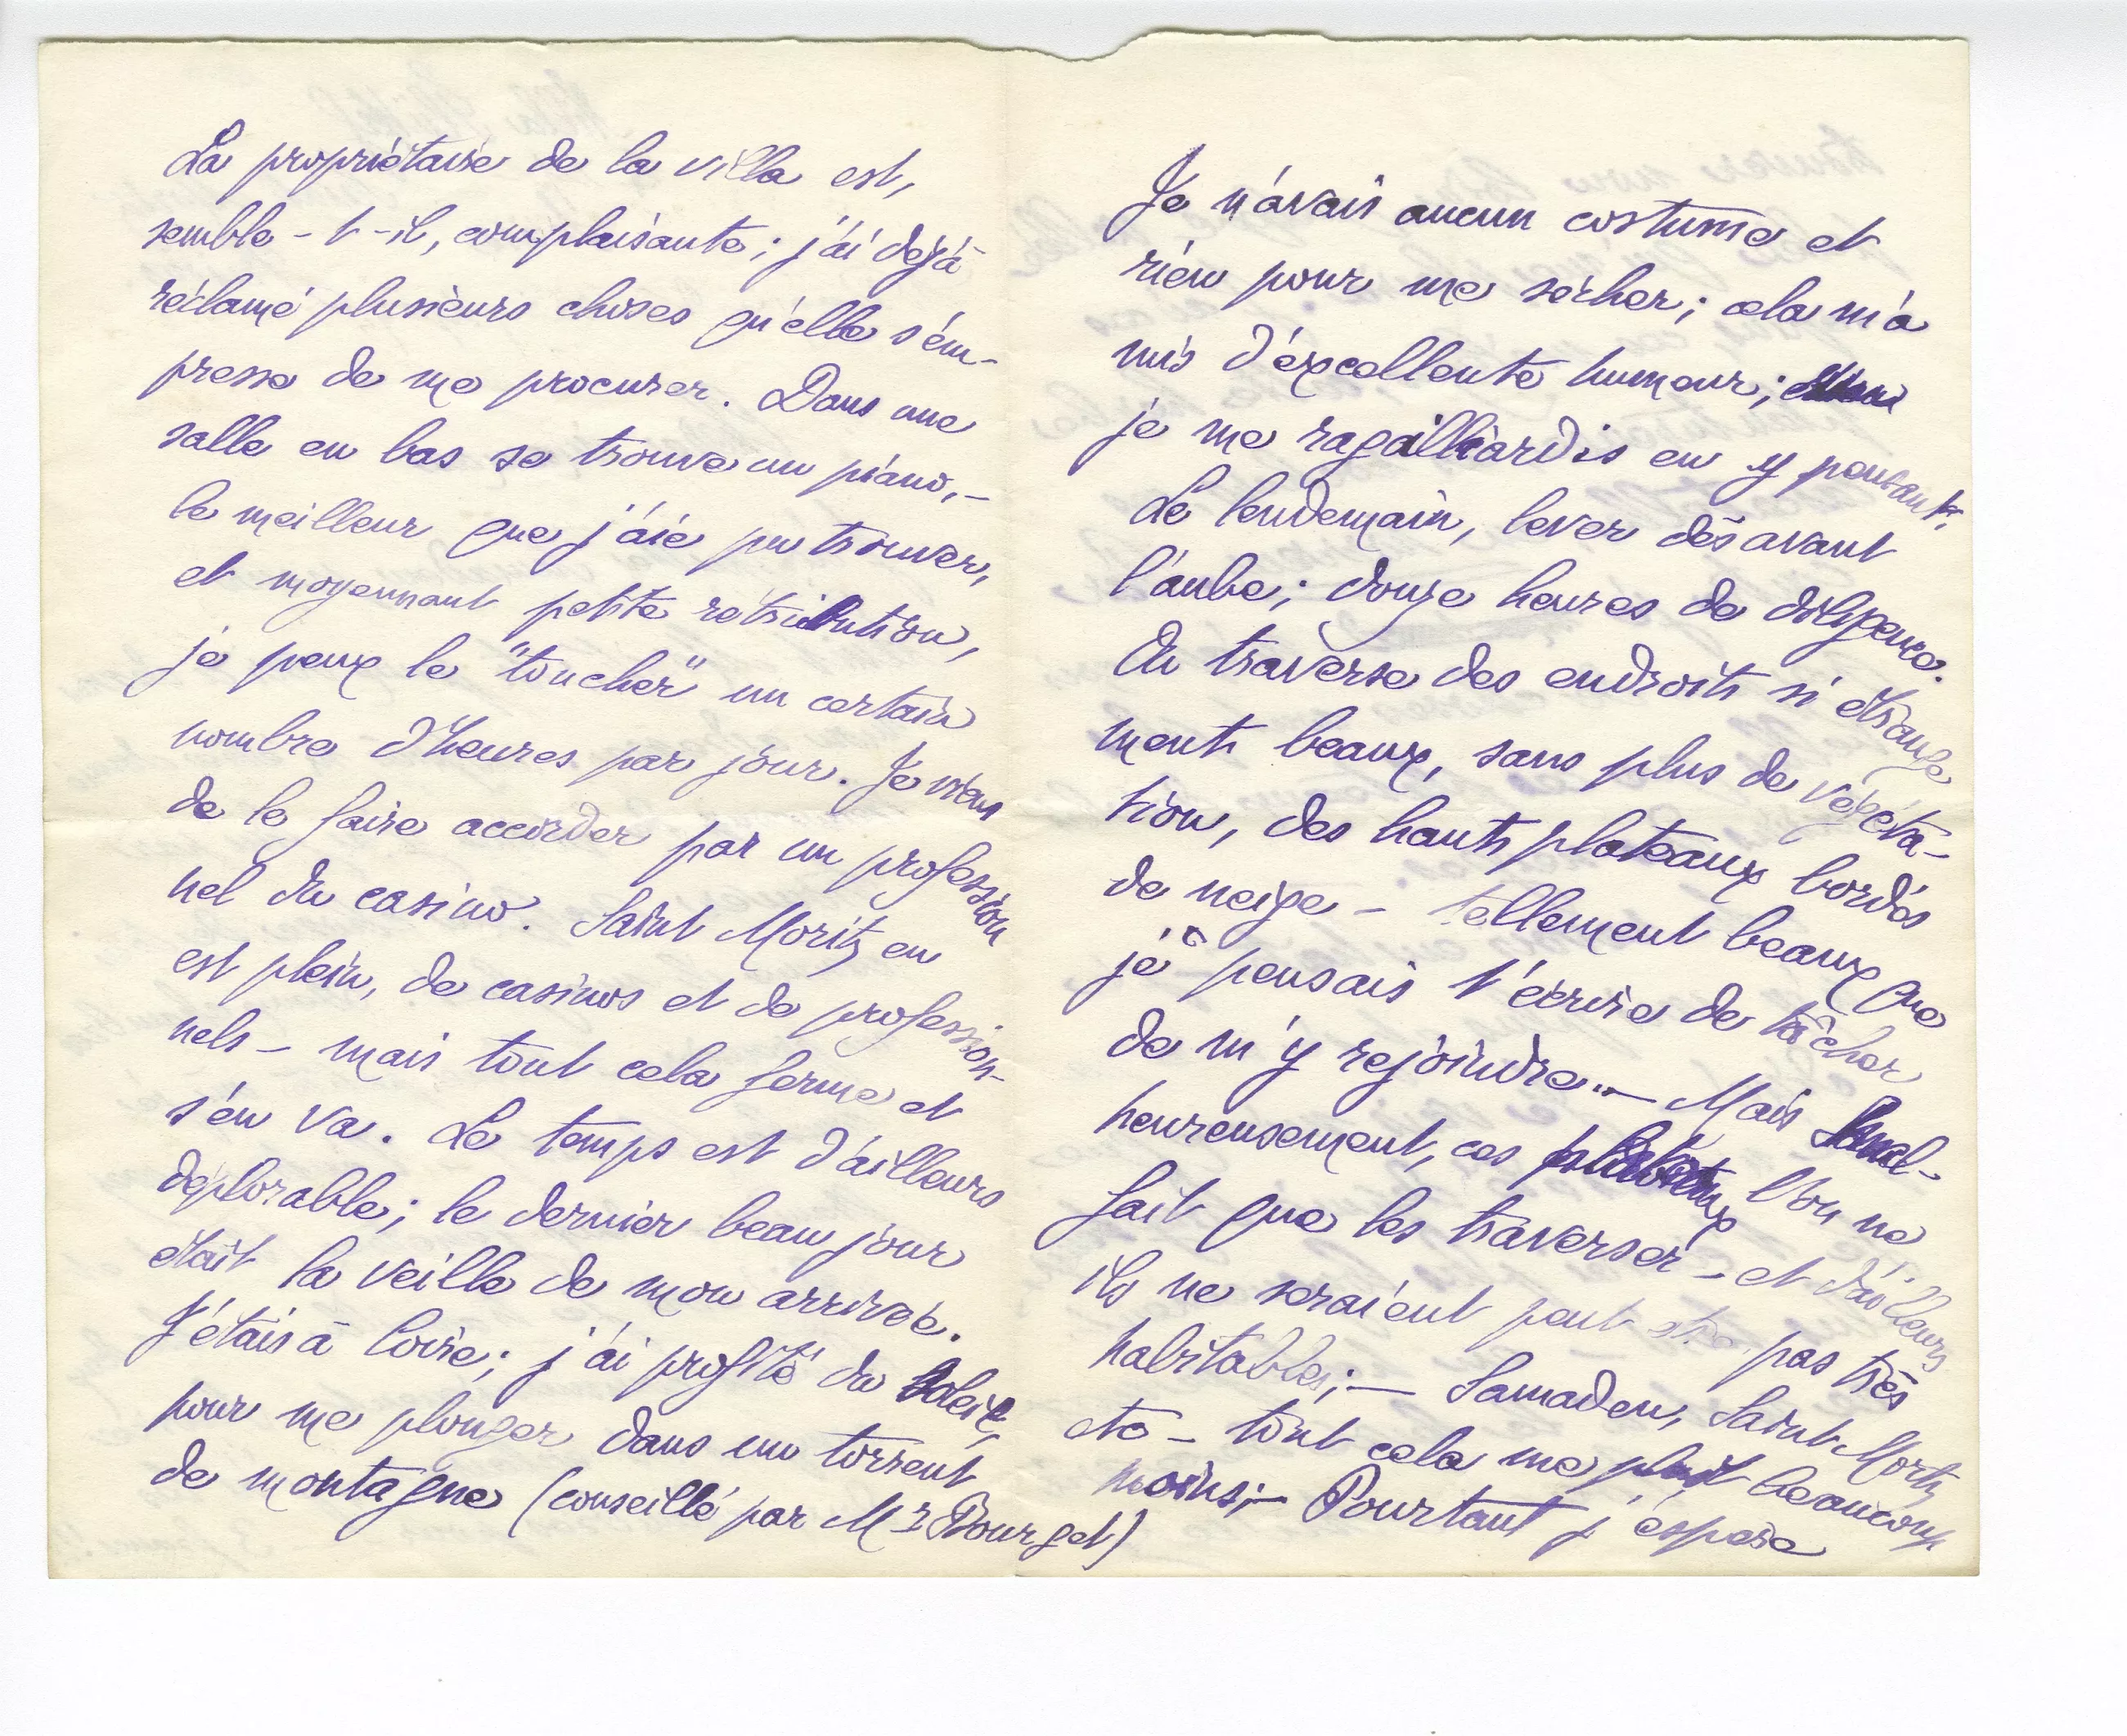 La propriétaire de la villa est,
semble-t-il, complaisante ; j'ai déjà
réclamé plusieurs choses qu'elle s'em-
presse de me procurer. Dans une
salle en bas se trouve un piano, –
le meilleur que j'aie pu trouver,
et moyennant petite rétribution,
je peux le "toucher" un certain
nombre d'heures par jour. Je viens
de le faire accorder par un profession
nel du casino. Saint Moritz en
est plein, de casinos et de profession-
nels – mais tout cela ferme et
s'en va. Le temps est d'ailleurs
déplorable ; le dernier beau jour
était la veille de mon arrivée.
J'étais à Coire ; j'ai profité du soleil,
pour me plonger dans un torrent
de montagne (conseillé par Mr Bourget)
Je n'avais aucun costume et
rien pour me sécher ; cela m'a
mis d'excellente humeur ;
je me ragaillardis en y pensant.
Le lendemain, lever dès avant
l'aube ; douze heures de diligence.
On traverse des endroits si étrange
ment beaux, sans plus de végéta-
tion, des hauts plateaux bordés
de neige – tellement beaux que
je pensais t'écrire de tâcher
de m'y rejoindre... – Mais mal-
heureusement, ces plateaux l'on ne
fait que les traverser – et d'ailleurs
ils ne seraient peut être pas très
habitables ; – Samaden, Saint Moritz
etc – tout cela me plaît beaucoup
moins ; – Pourtant j'espère